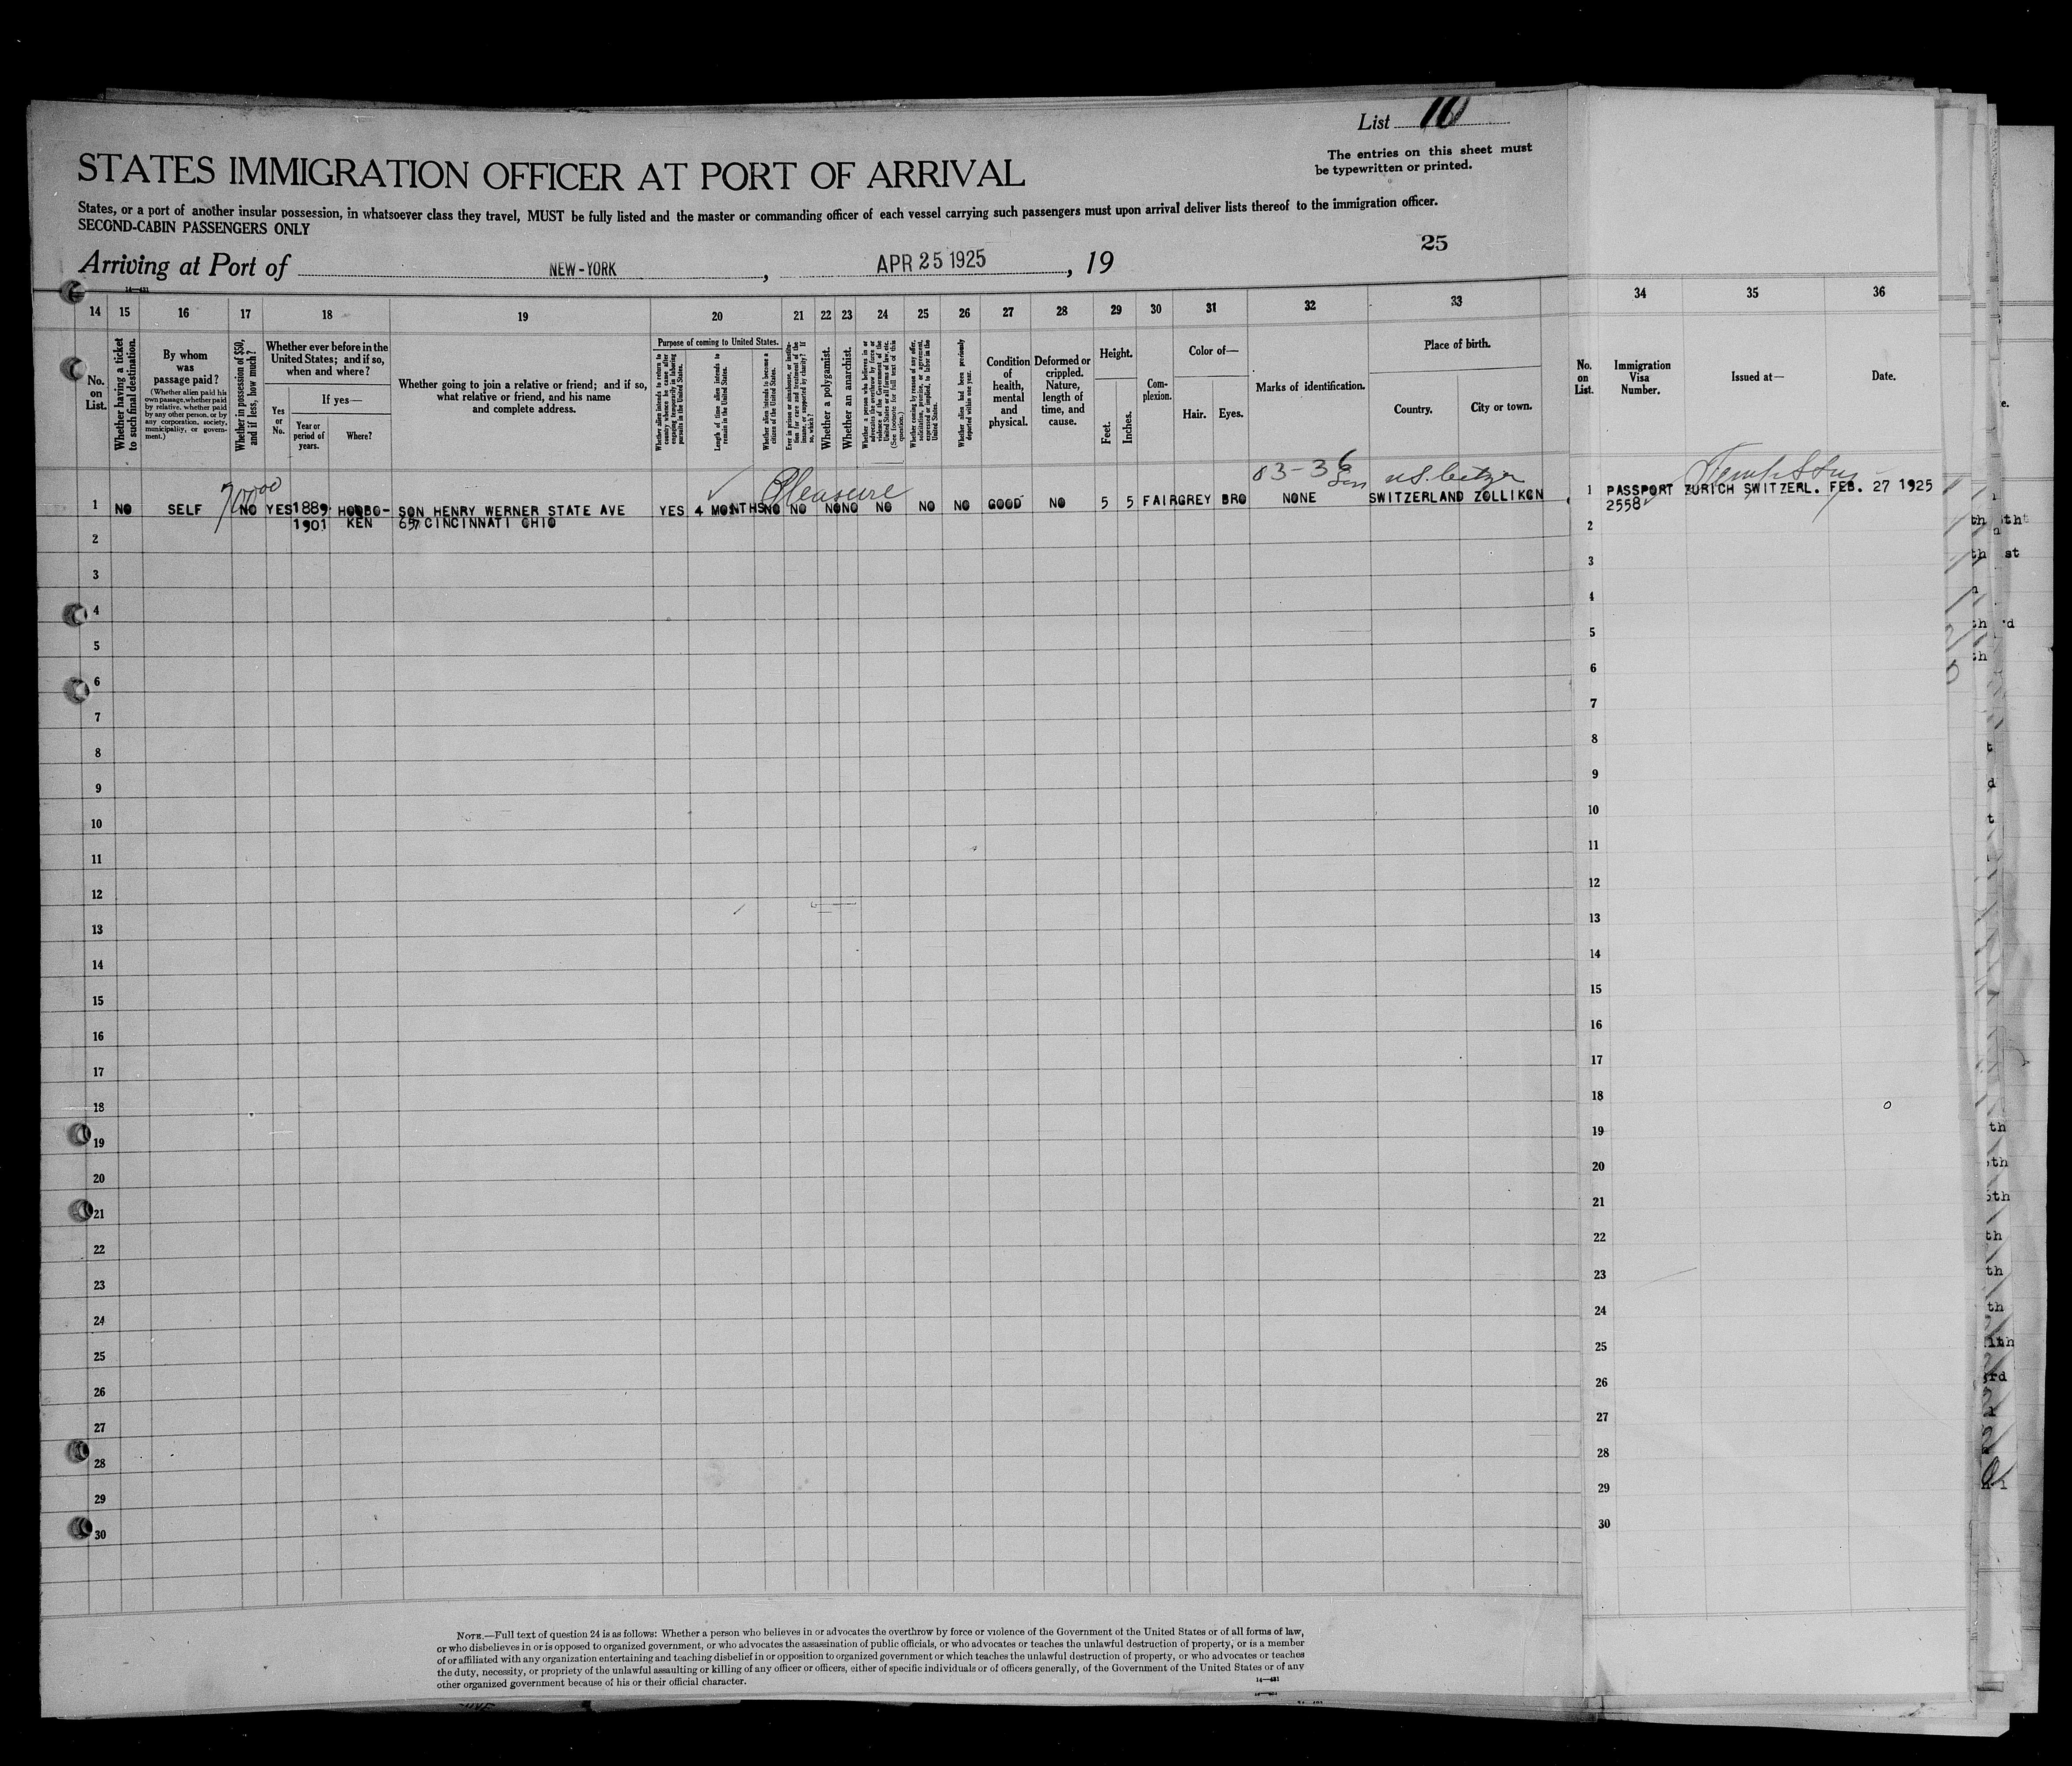 List 10
The entries on this sheet must
be typewritten or printed.
STATES IMMIGRATION OFFICER AT PORT OF ARRIVAL
States, or a port of another insular possession, in whatsoever class they travel, MUST be fully listed and the master or commanding officer of each vessel carrying such passengers must upon arrival deliver lists thereof to the immigration officer.
SECOND-CABIN PASSENGERS ONLY
25
Arriving at Port of NEW-YORK, APR 25 1925, 19
14 15 16 17 18 19 20 21 22 23 24 25 26 27 28 29 30 31 32 33 34 35 36
No. on List.
Whether having a ticket to such final destination.
By whom was passage paid?
(Whether alien paid his own passage, whether paid by relative, whether paid by any other person, or by any corporation, society, municipality, or government.)
Whether in possession of $50, and if less, how much?
Whether ever before in the United States; and if so, when and where?
Yes or No.
If yes—
Year or period of years.
Where?
Whether going to join a relative or friend; and if so, what relative or friend, and his name and complete address.
Purpose of coming to United States.
Whether alien intends to return to country whence he came after engaging temporarily in laboring pursuits in the United States.
Length of time alien intends to remain in the United States.
Whether alien intends to become a citizen of the United States.
Ever in prison or almshouse, or institution for care and treatment of the insane, or supported by charity? If so, which?
Whether a polygamist.
Whether an anarchist.
Whether a person who believes in or advocates the overthrow by force or violence of the Government of the United States or all forms of law, etc. (See footnote for full text of this question.)
Whether coming by reason of any offer, solicitation, promise, or agreement, expressed or implied, to labor in the United States.
Whether alien had been previously deported within one year.
Condition of health, mental and physical.
Deformed or crippled. Nature, length of time, and cause.
Height.
Feet. Inches.
Complexion.
Color of—
Hair. Eyes.
Marks of identification.
Place of birth.
Country. City or town.
No. on List.
Immigration Visa Number.
Issued at—
Date.
700.00
Pleasure
03-36
U.S. Citzen
1 NO SELF NO YES 1889 HOOBO- SON HENRY WERNER STATE AVE YES 4 MONTHS NO NO NO NO NO NO NO GOOD NO 5 5 FAIR GREY BRO NONE SWITZERLAND ZOLLIKON 1 PASSPORT ZURICH SWITZERL. FEB. 27 1925
1901 KEN 657 CINCINNATI OHIO 2558
2 2
3 3
4 4
5 5
6 6
7 7
8 8
9 9
10 10
11 11
12 12
13 13
14 14
15 15
16 16
17 17
18 18
19 19
20 20
21 21
22 22
23 23
24 24
25 25
26 26
27 27
28 28
29 29
30 30
NOTE.—Full text of question 24 is as follows: Whether a person who believes in or advocates the overthrow by force or violence of the Government of the United States or of all forms of law,
or who disbelieves in or is opposed to organized government, or who advocates the assassination of public officials, or who advocates or teaches the unlawful destruction of property, or is a member
of or affiliated with any organization entertaining and teaching disbelief in or opposition to organized government or which teaches the unlawful destruction of property, or who advocates or teaches
the duty, necessity, or propriety of the unlawful assaulting or killing of any officer or officers, either of specific individuals or of officers generally, of the Government of the United States or of any
other organized government because of his or their official character.